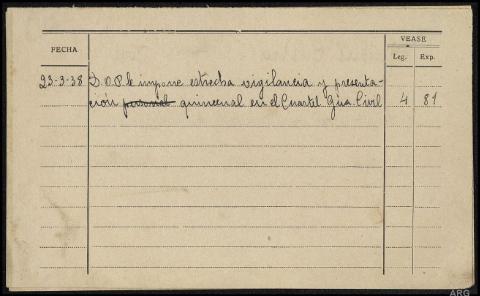 VEASE
FECHA
Leg. Exp.
23-3-38 D.O.P. le impone estrecha vigilancia y presenta-
ción personal quincenal en el Cuartel Gûa. Civil 4 81
ARG